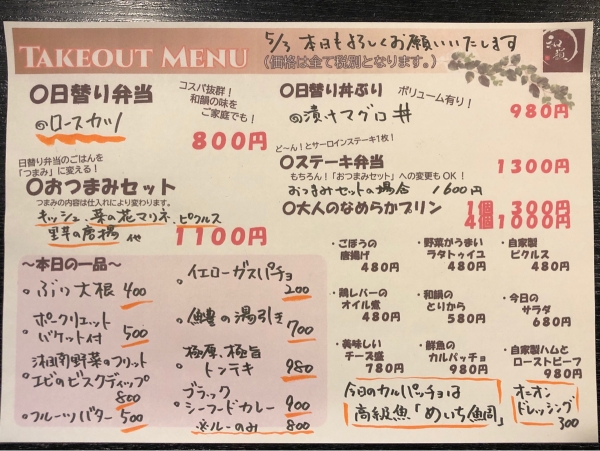 TAKEOUT MENU
5/3 本日もよろしくお願いいたします
(価格は全て税別となります。)
和韻
〇日替り弁当
コスパ抜群!
和韻の味を
ご家庭でも!
◎ロースカツ
800円
〇日替り丼ぶり
ボリューム有り!
◎漬けマグロ丼
980円
日替り弁当のごはんを
「つまみ」に変える!
〇おつまみセット
つまみの内容は仕入れにより変わります。
キッシュ、菜の花マリネ、ピクルス
里芋の唐揚 他
1100円
ど〜ん!とサーロインステーキ1枚!
〇ステーキ弁当
1300円
もちろん!「おつまみセット」への変更もOK!
おつまみセットの場合 1600円
〇大人のなめらかプリン
1個 300円
4個1000円
〜本日の一品〜
・ぶり大根 400
・ポークリエット
バケット付 500
・湘南野菜のフリット
エビのビスクディップ
800
・フルーツバター 500
・イエローガスパチョ
200
・鱧の湯引き
700
・極厚、極旨
トンテキ 980
・ブラック
シーフードカレー 900
※ルーのみ 800
・ごぼうの
唐揚げ
480円
・野菜がうまい
ラタトゥイユ
480円
・自家製
ピクルス
480円
・鶏レバーの
オイル煮
480円
・和韻の
とりから
580円
・今日の
サラダ
680円
・美味しい
チーズ盛
780円
・鮮魚の
カルパッチョ
980円
・自家製ハムと
ローストビーフ
980円
今日のカルパッチョは
高級魚「めいち鯛」
オニオン
ドレッシング
300